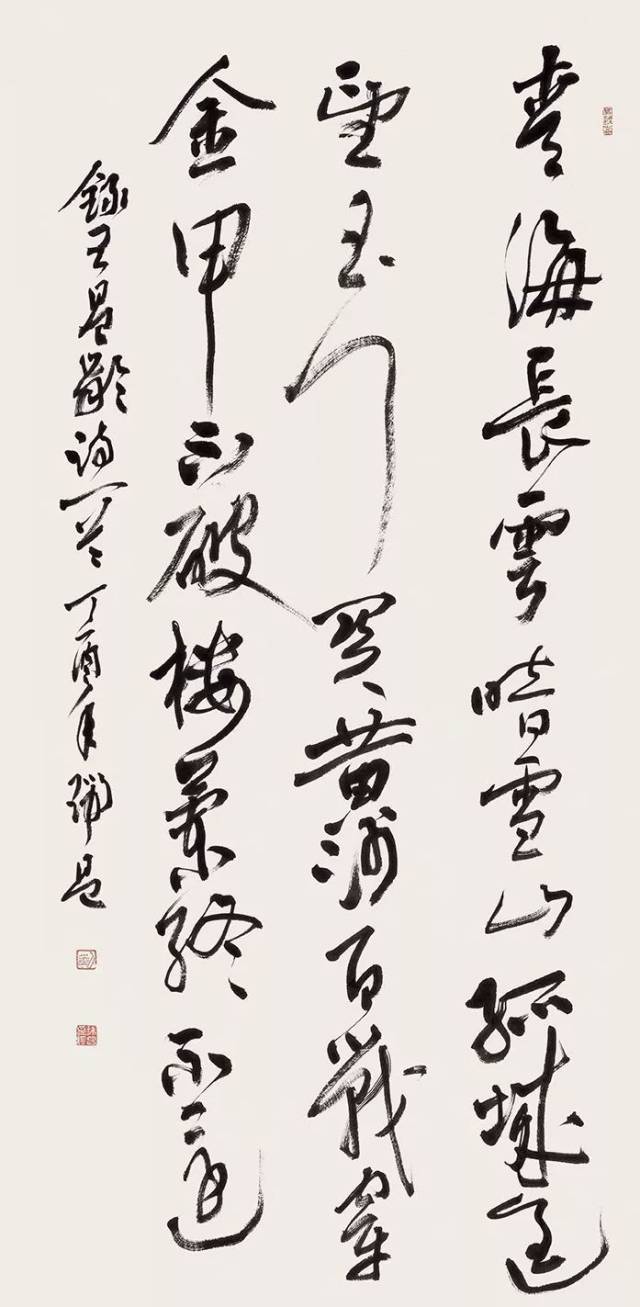 青海長雲暗雪山孤城遥
望玉門關黄沙百戰穿
金甲不破楼蘭終不還
録王昌齡诗一首丁酉年